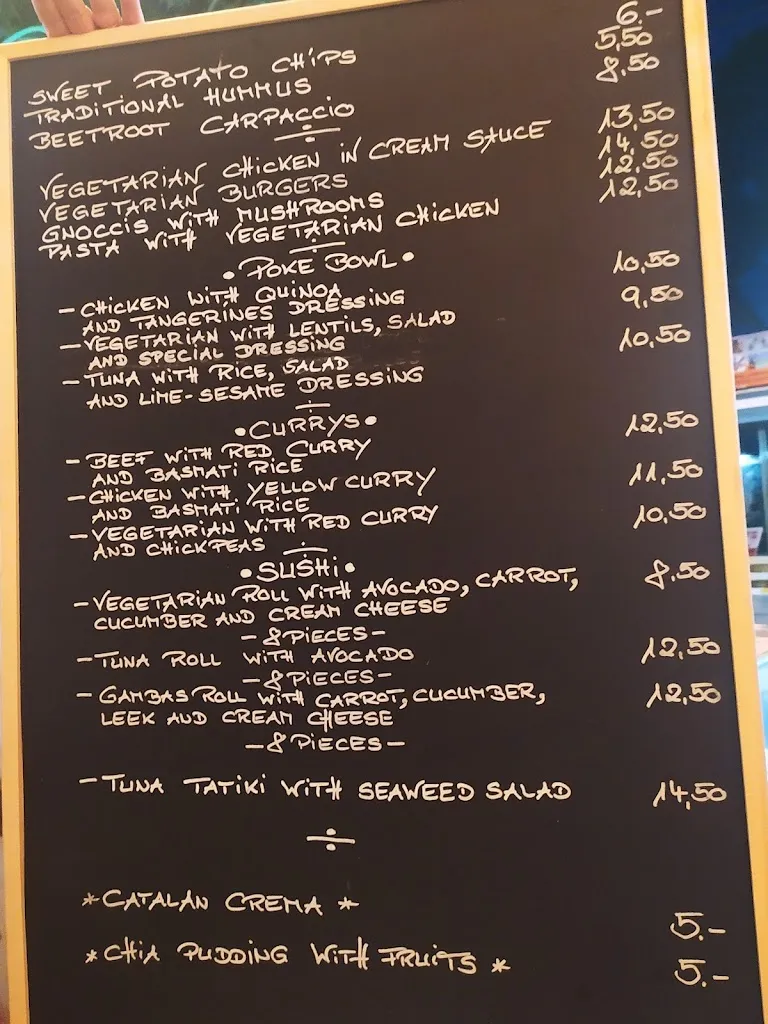 SWEET POTATO CHIPS 6.-
TRADITIONAL HUMMUS 5,50
BEETROOT CARPACCIO 8,50
÷
VEGETARIAN CHICKEN IN CREAM SAUCE 13,50
VEGETARIAN BURGERS 14,50
GNOCCIS WITH MUSHROOMS 12,50
PASTA WITH VEGETARIAN CHICKEN 12,50
÷
• POKE BOWL •
- CHICKEN WITH QUINOA 10,50
AND TANGERINES DRESSING
- VEGETARIAN WITH LENTILS, SALAD 9,50
AND SPECIAL DRESSING
- TUNA WITH RICE, SALAD 10,50
AND LIME-SESAME DRESSING
÷
• CURRYS •
- BEEF WITH RED CURRY 12,50
AND BASMATI RICE
- CHICKEN WITH YELLOW CURRY 11,50
AND BASMATI RICE
- VEGETARIAN WITH RED CURRY 10,50
AND CHICKPEAS
÷
• SUSHI •
- VEGETARIAN ROLL WITH AVOCADO, CARROT, 8,50
CUCUMBER AND CREAM CHEESE
- 8 PIECES -
- TUNA ROLL WITH AVOCADO 12,50
- 8 PIECES -
- GAMBAS ROLL WITH CARROT, CUCUMBER, 12,50
LEEK AND CREAM CHEESE
- 8 PIECES -
- TUNA TATIKI WITH SEAWEED SALAD 14,50
÷
* CATALAN CREMA * 5.-
* CHIA PUDDING WITH FRUITS * 5.-